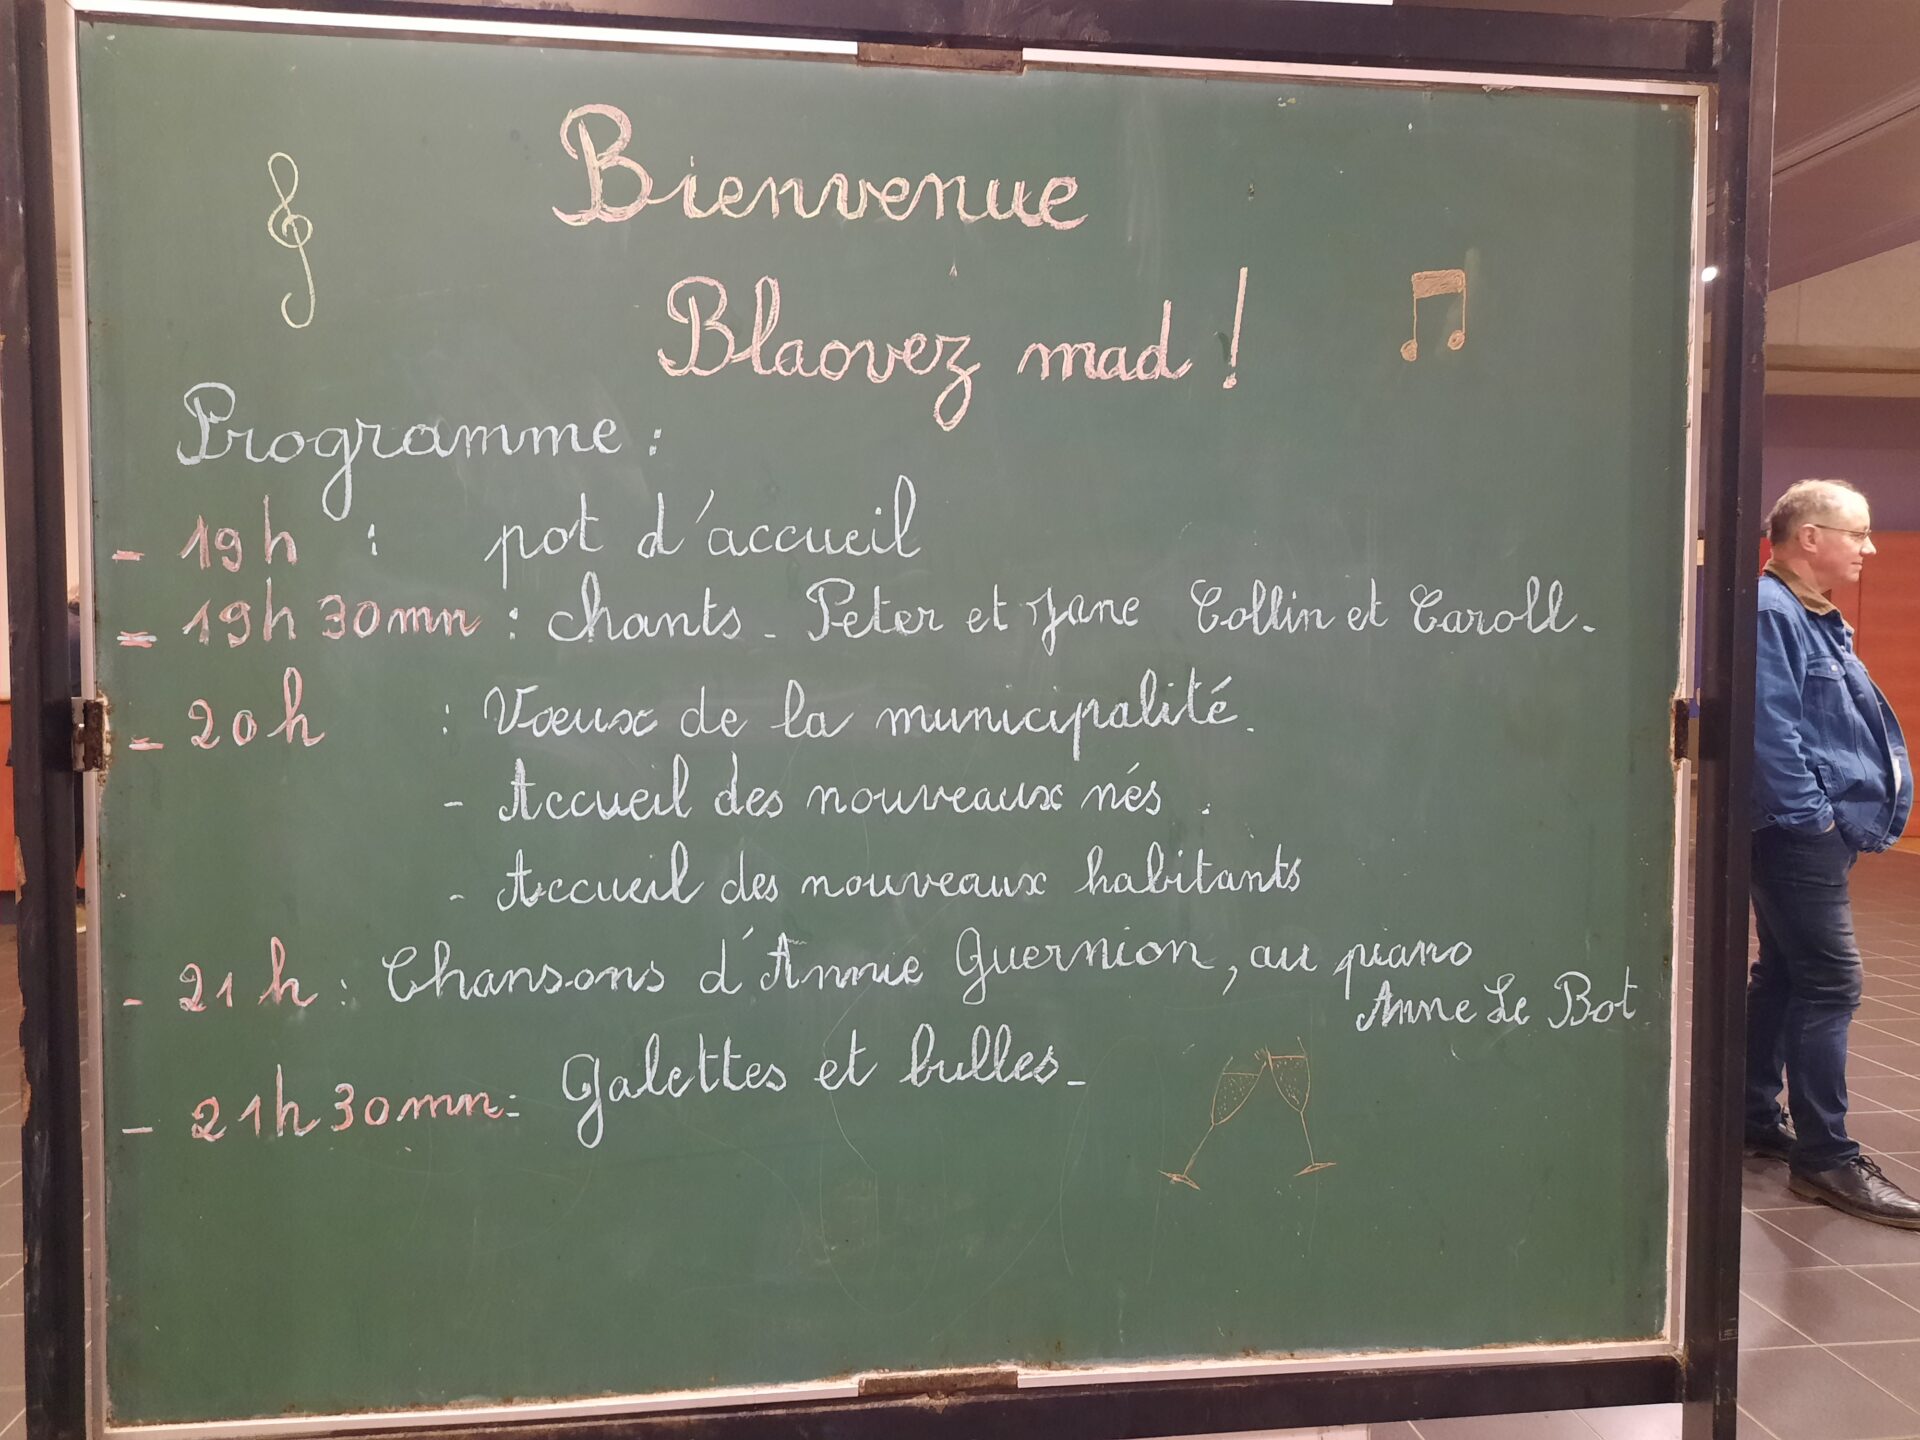 Bienvenue
Blaovez mad !
Programme :
- 19h : pot d'accueil
- 19h 30mn : chants - Peter et Jane Collin et Caroll.
- 20h : Vœux de la municipalité.
- Accueil des nouveaux nés.
- Accueil des nouveaux habitants
- 21h : Chansons d'Annie Guernion, au piano
Anne Le Bot
- 21h 30mn - Galettes et bulles -